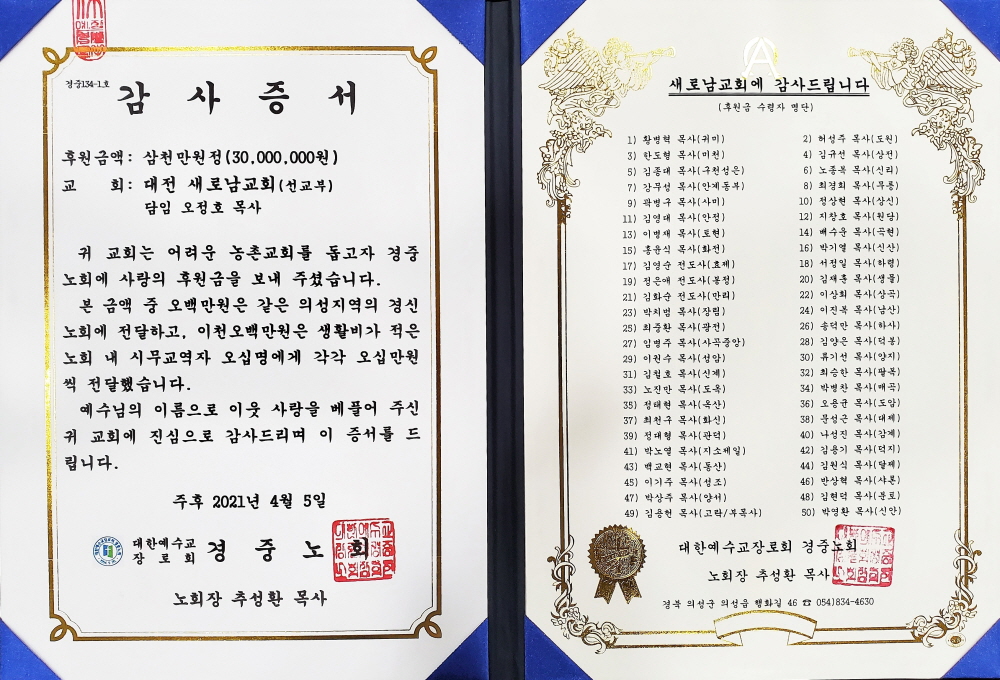 경중134-1호
감 사 증 서
후원금액: 삼천만원정(30,000,000원)
교 회: 대전 새로남교회(선교부)
담임 오정호 목사
귀 교회는 어려운 농촌교회를 돕고자 경중
노회에 사랑의 후원금을 보내 주셨습니다.
본 금액 중 오백만원은 같은 의성지역의 경신
노회에 전달하고, 이천오백만원은 생활비가 적은
노회 내 시무교역자 오십명에게 각각 오십만원
씩 전달했습니다.
예수님의 이름으로 이웃 사랑을 베풀어 주신
귀 교회에 진심으로 감사드리며 이 증서를 드
립니다.
주후 2021년 4월 5일
대한예수교
장로회 경 중 노 회
노회장 추성환 목사
새로남교회에 감사드립니다
(후원금 수령자 명단)
1) 황병혁 목사(귀미)
2) 허성주 목사(도원)
3) 한도형 목사(미천)
4) 김규선 목사(삼전)
5) 김종대 목사(구천성은)
6) 노종복 목사(신리)
7) 강무성 목사(안계동부)
8) 최경희 목사(무릉)
9) 곽병구 목사(사미)
10) 정상현 목사(삼신)
11) 김영대 목사(안정)
12) 지창호 목사(원당)
13) 이병재 목사(토현)
14) 배수운 목사(곡현)
15) 홍윤식 목사(화전)
16) 박기열 목사(신산)
17) 김영순 전도사(효제)
18) 서정일 목사(하령)
19) 정은애 전도사(봉정)
20) 김재훈 목사(샘물)
21) 김화순 전도사(만리)
22) 이상희 목사(삼곡)
23) 박치범 목사(장림)
24) 이진복 목사(남산)
25) 최중환 목사(광전)
26) 송덕만 목사(하사)
27) 임병주 목사(사곡중앙)
28) 김양은 목사(덕봉)
29) 이원수 목사(성암)
30) 류기선 목사(양지)
31) 김철호 목사(신계)
32) 최승한 목사(팔복)
33) 노진만 목사(도옥)
34) 박병찬 목사(매곡)
35) 정태현 목사(옥산)
36) 오용균 목사(도암)
37) 최천구 목사(화신)
38) 문성근 목사(대제)
39) 정대형 목사(관덕)
40) 나성진 목사(감계)
41) 박노열 목사(지소제일)
42) 김용기 목사(덕지)
43) 백교현 목사(동산)
44) 김원식 목사(달제)
45) 이기주 목사(성조)
46) 반상혁 목사(샤론)
47) 박상주 목사(양서)
48) 김현덕 목사(분토)
49) 김용현 목사(고탁/부목사)
50) 박영환 목사(신안)
대한예수교장로회 경중노회
노회장 추성환 목사
경북 의성군 의성읍 행화길 46 ☎ 054)834-4630